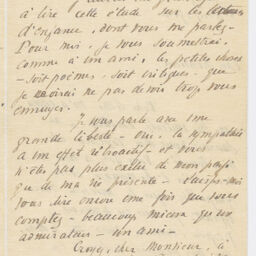 à lire cette étude sur les
d'enfance, dont vous me parlez -
Pour moi, je vous soumettrai,
comme à un ami, les petites choses
- soit poèmes, soit critiques, que
je de vous trop vous
envoyer.
Je vous parle avec une
grande liberté - oui, la sympathie
a un effet rétroactif - et vous
n'êtes pas plus exclu de mon passé
que de ma vie présente - -moi
vous dire encore une fois que vous
comptez - beaucoup mieux qu'un
admirateur - un ami -
Croyez, cher Monsieur, à